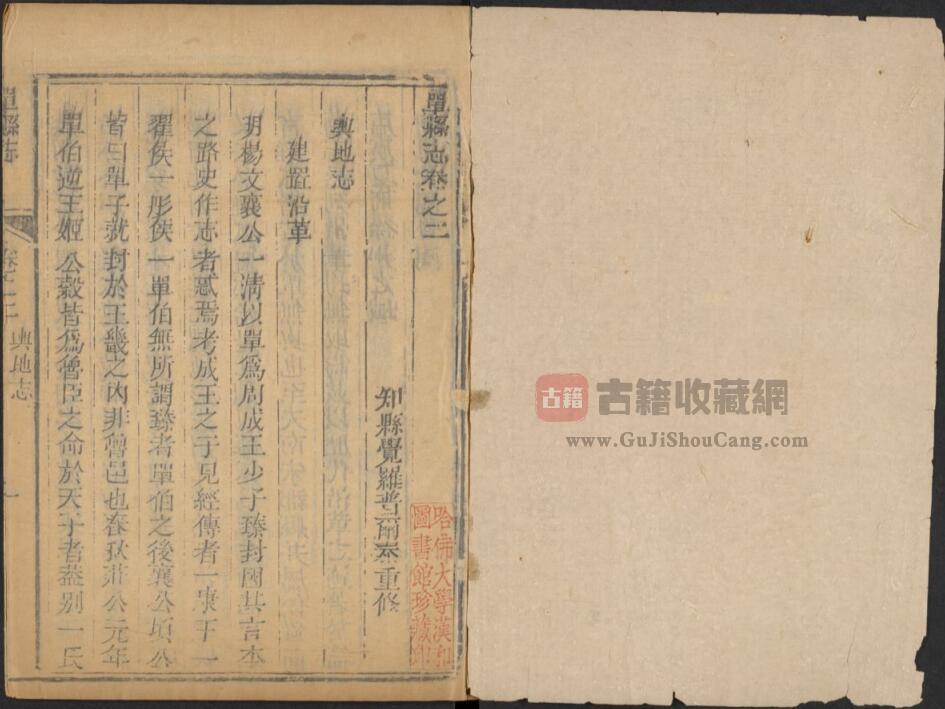 單縣志卷之二
知縣覺羅普爾泰重修
輿地志
建置沿革
明楊文襄公一清以單爲周成王少子臻封國其言本
之路史作志者惑焉考成王之子見經傳者一康王一
翟侯一彤侯一單伯無所謂臻者單伯之後襄公頃公
皆曰單子就封於王畿之內非僭邑也春秋莊公元年
單伯逆王姬公穀皆爲僭臣之命於天子者蓋別一氏
單縣志
卷之二
輿地志
一
哈佛大學漢和
圖書館珍藏印
古籍
古籍收藏網
www.GuJiShouCang.com